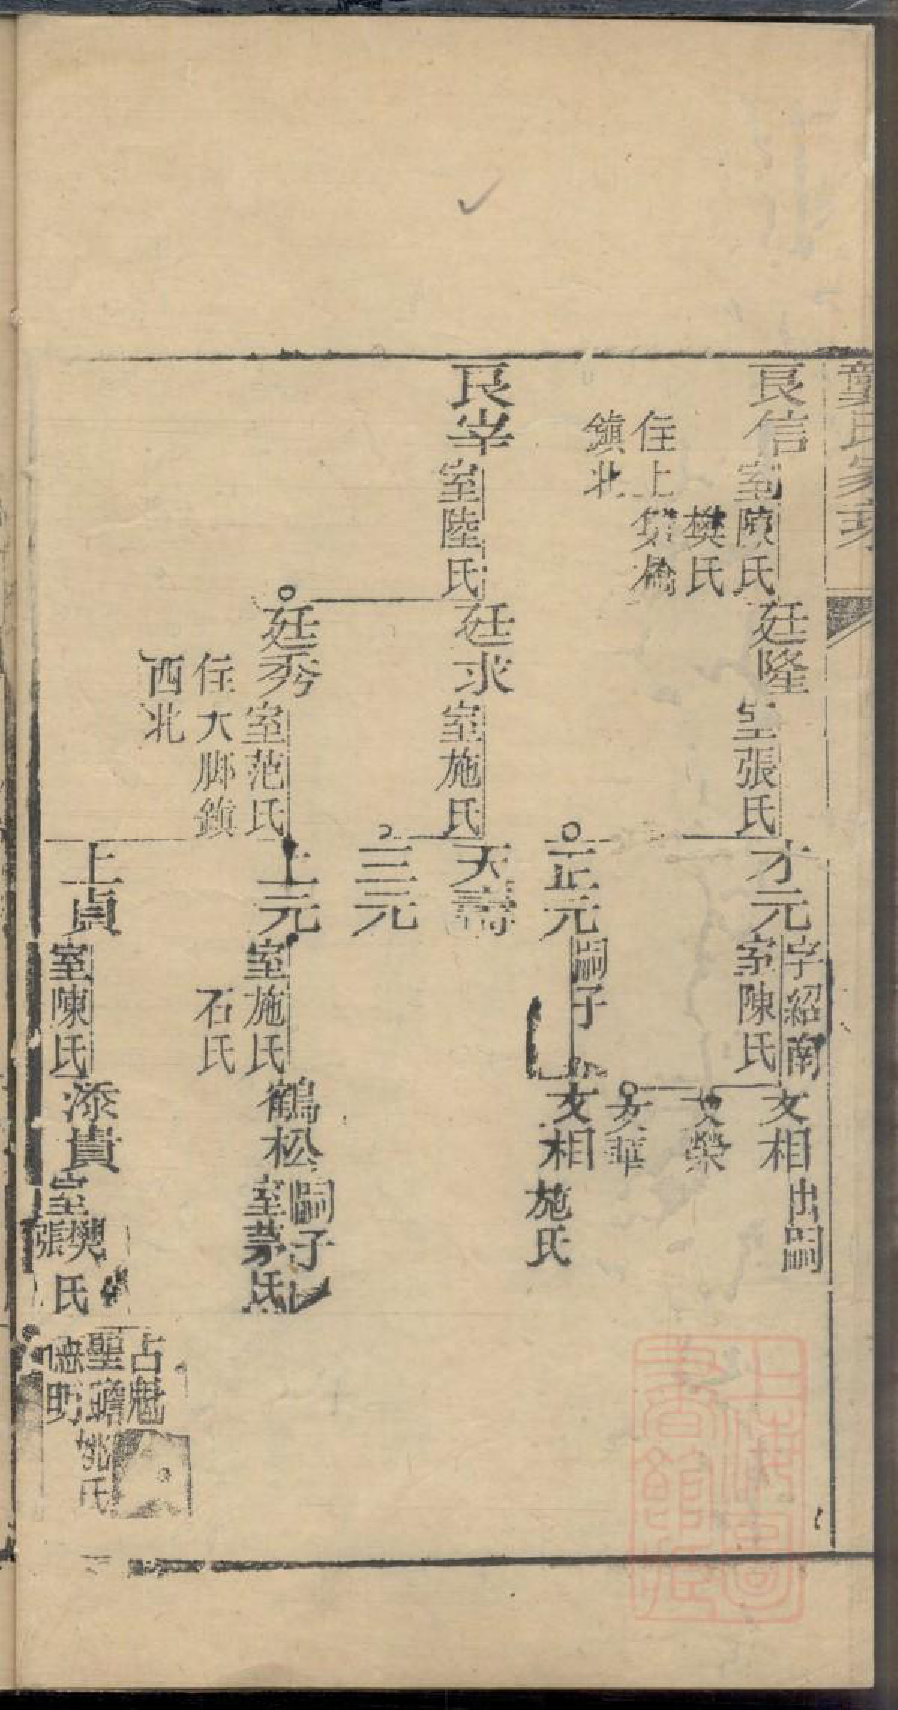 龔氏家乘
良信
室陳氏
樊氏
住上
橋
鎮北
廷隆
室張氏
才元
字紹南
室陳氏
文相
出嗣
文榮
文華
正元
嗣子
文相
施氏
良宰
室陸氏
廷求
室施氏
天壽
三元
廷秀
室范氏
住大脚鎮
西北
上元
室施氏
石氏
鶴松
嗣子
室茅氏
上貞
室陳氏
添貴
室樊
張
氏
占魁
聖蟾
姚氏
明
上海圖書館藏